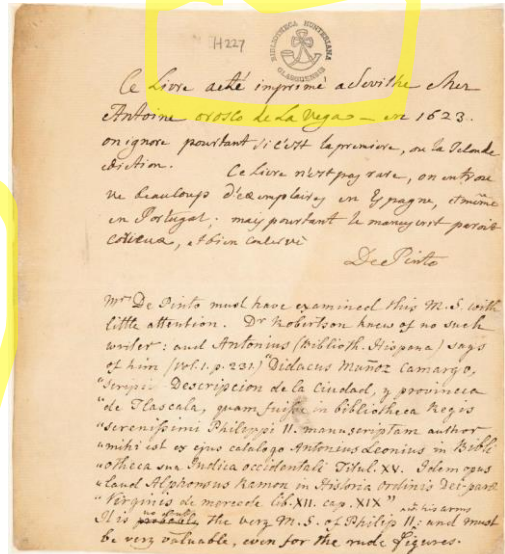 H227
BIBLIOTHECA HUNTERIANA
GLASGUENSIS
Ce Livre a eté imprimé a Seville chez
Antoine orosco de La Vega — en 1623.
on ignore pourtant si c'est la premiere, ou la Seconde
Edition. Ce Livre n'est pas rare, on en trou
ve beaucoup d'exemplaires en Espagne, et même
en Portugal; mais pourtant le manuscrit paroit
curieux, et bien conservé
De Pinto
Mr De Pinto must have examined this M.S. with
little attention. Dr Robertson knew of no such
writer: and Antonius (Biblioth. Hispana) says
of him (vol. 1. p. 231.) "Didacus Muñoz Camargo,
"scripsit Descripcion de la Ciudad, y provincia
"de Tlascala, quam fuisse in bibliotheca Regis
"serenissimi Philippi II. manuscriptam author
"mihi est ex ejus catalogo Antonius Leonius in Bibli
"otheca sua Indica occidentali Titul. XV. Idem opus
"laud Alphonsus Ramon in Historia Ordinis Dei-paræ
"Virginis de mercede lib. XII. cap. XIX"
It is no doubt the very M.S. of Philip II: with his arms and must
be very valuable, even for the rude figures.